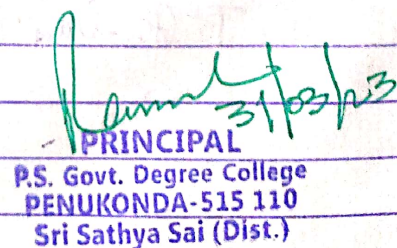 31/03/23
PRINCIPAL
P.S. Govt. Degree College
PENUKONDA-515 110
Sri Sathya Sai (Dist.)